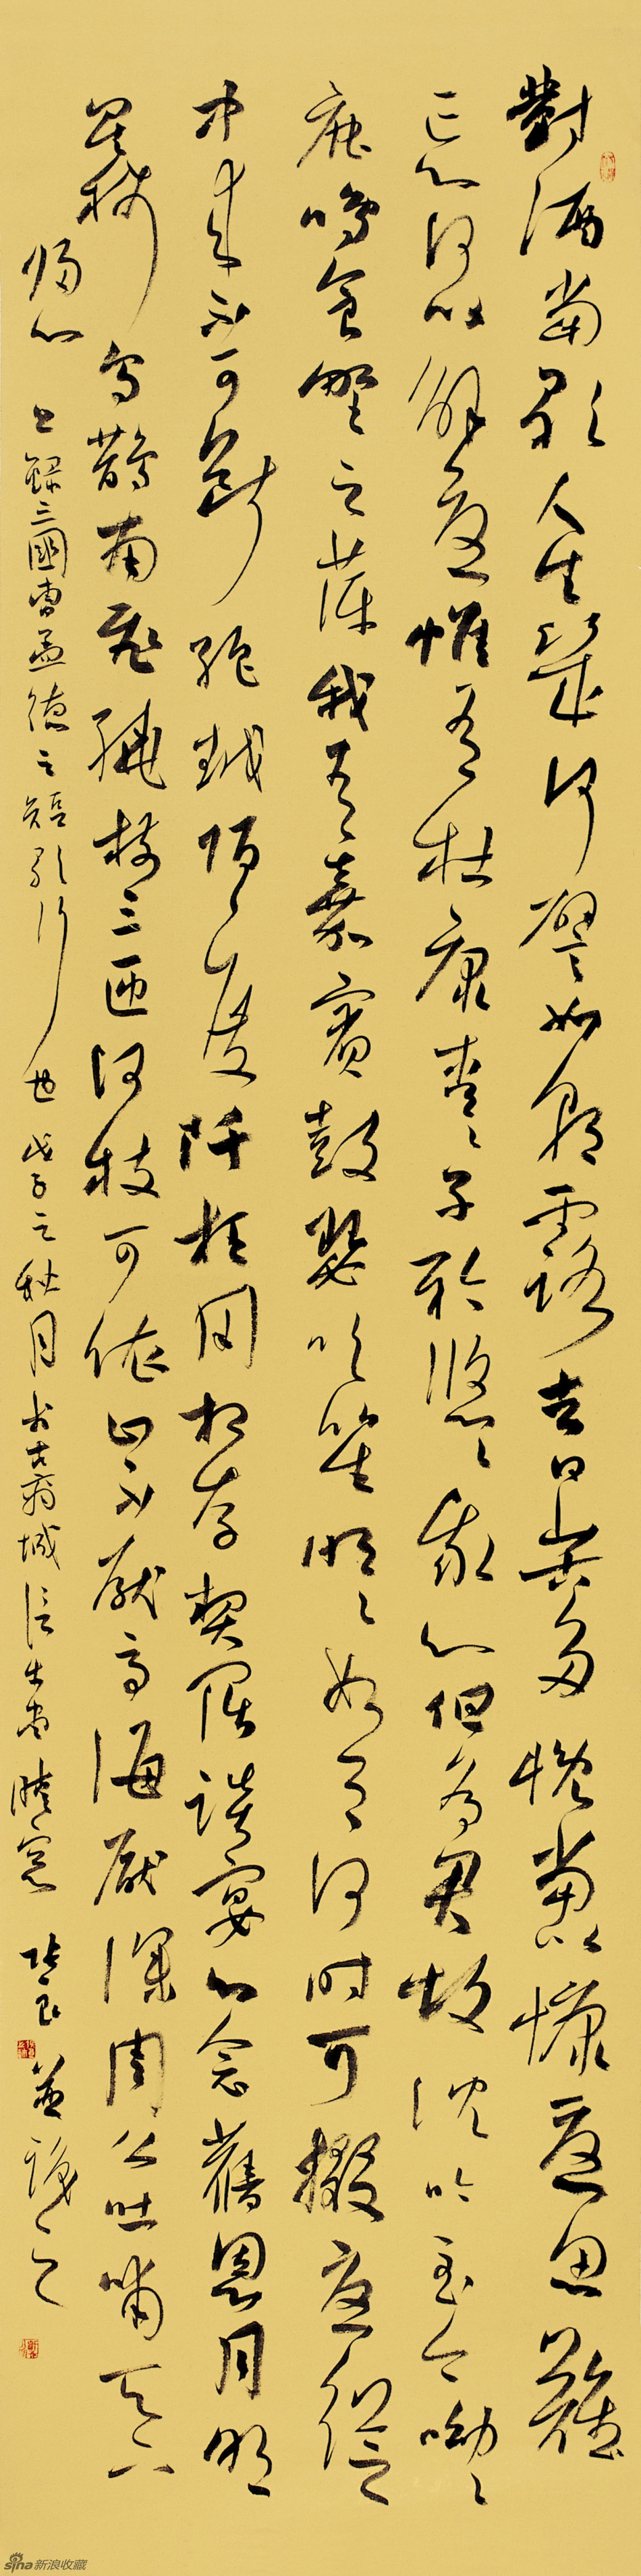 對酒當歌人生幾何譬如朝露去日苦多慨當以慷憂思難
忘何以解憂惟有杜康青々子衿悠々我心但為君故沈吟至今呦々
鹿鳴食野之蘋我有嘉賓鼓瑟吹笙明々如月何時可掇憂從
中來不可斷絕越陌度阡枉用相存契闊談宴心念舊恩月明
星稀烏鵲南飛繞樹三匝何枝可依山不厭高海厭深周公吐哺天下
歸心 上錄三國曹孟德之短歌行也 戊子之秋月 於古彭城 晴窗 並識之
sina新浪收藏